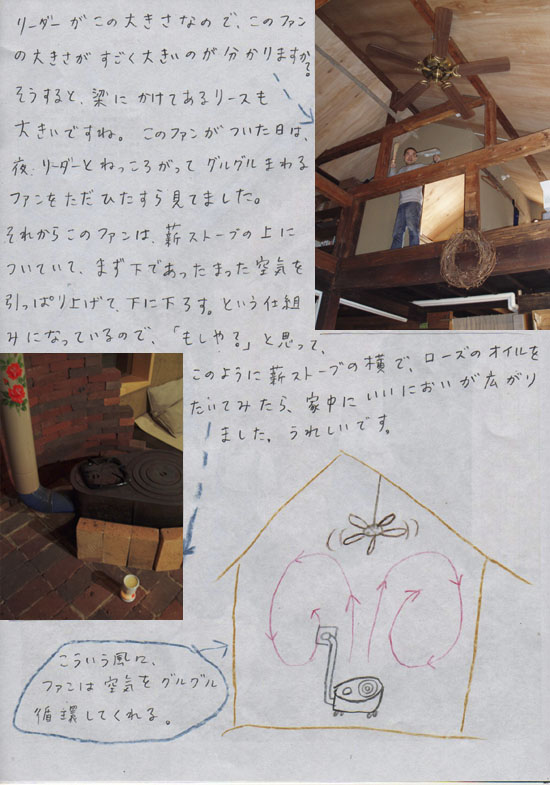 リーダーがこの大きさなので、このファン
の大きさがすごく大きいのが分かりますか?
そうすると、梁にかけてあるリースも
大きいですね。このファンがついた日は、
夜、リーダーとねっころがってグルグルまわる
ファンをただひたすら見てました。
それからこのファンは、薪ストーブの上に
ついていて、まず下であったまった空気を
引っぱり上げて、下に下ろす。という仕組
みになっているので、「もしや?」と思って、
このように薪ストーブの横で、ローズのオイルを
たいてみたら、家中にいいにおいが広がり
ました。うれしいです。
こういう風に、
ファンは空気をグルグル
循環してくれる。